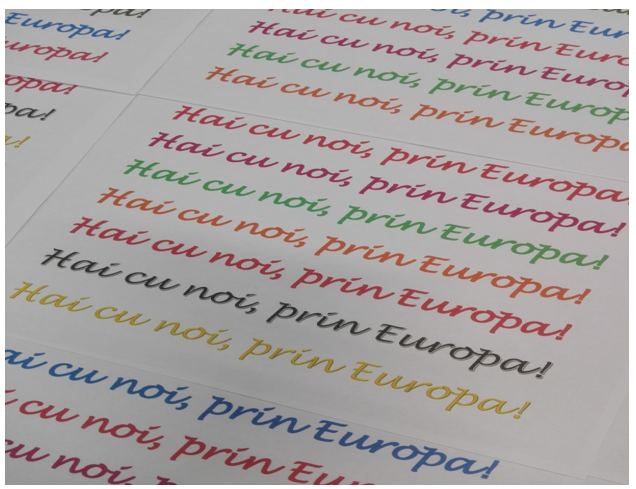 Europa!
uropa!
ropa!
pa!
a!
Hai cu noi, prin Euro
Hai cu noi, prin Europ
Hai cu noi, prin Europa
Hai cu noi, prin Europa
Hai cu noi, prin Europa!
Hai cu noi, prin Europa!
Hai cu noi, prin Europa!
Hai cu noi, prin Europa!
Hai cu noi, prin Europa!
Hai cu noi, prin Europa!
Hai cu noi, prin Europa!
ai cu noi, prin Europa!
cu noi, prin Euro
cu noi, prin